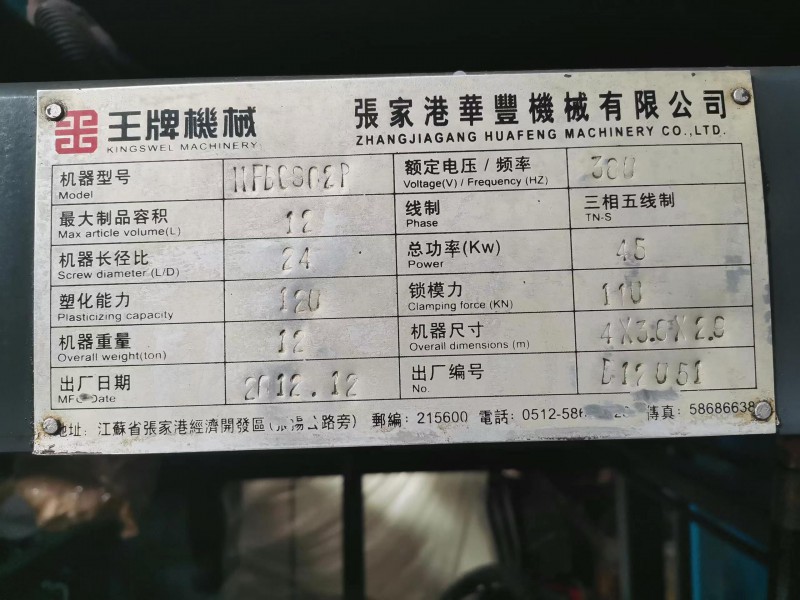 王牌機械
KINGSWEL MACHINERY
張家港華豐機械有限公司
ZHANGJIAGANG HUAFENG MACHINERY CO.,LTD.
机器型号
Model
额定电压 / 频率
Voltage(V) / Frequency (HZ)
380
最大制品容积
Max article volume(L)
12
线制
Phase
三相五线制
TN-S
机器长径比
Screw diameter (L/D)
24
总功率(Kw)
Power
45
塑化能力
Plasticizing capacity
120
锁模力
Clamping force (KN)
110
机器重量
Overall weight(ton)
12
机器尺寸
Overall dimensions (m)
出厂日期
Date
2012.12
出厂编号
No.
地址: 江蘇省張家港經濟開發區 公路旁) 郵編: 215600 電話: 0512-586 傳真: 58686638